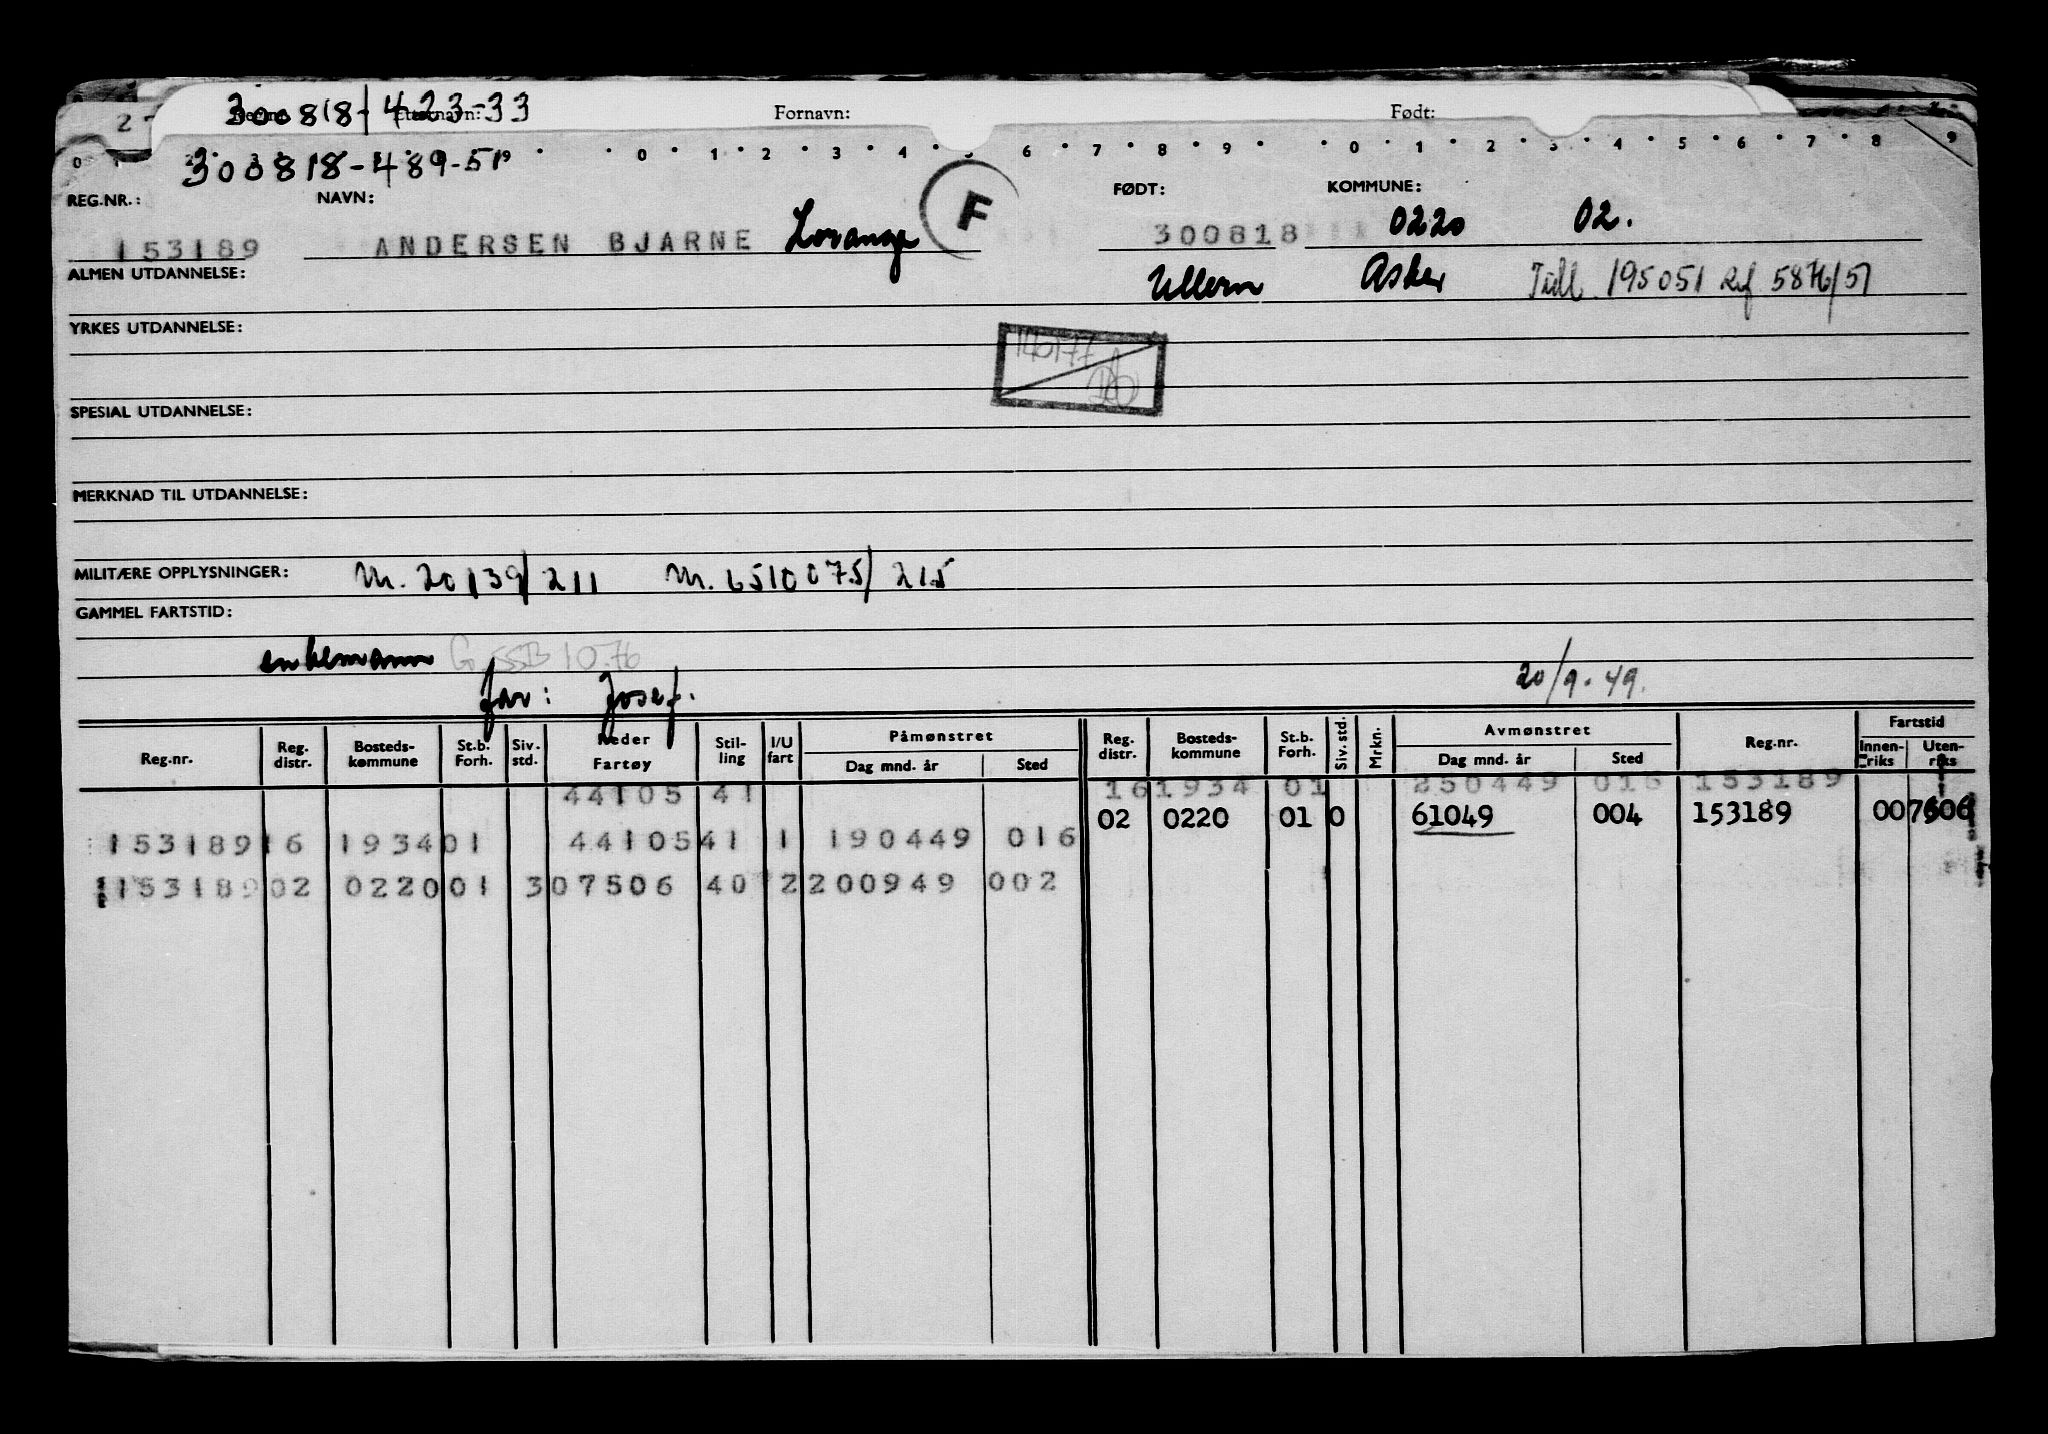 300818-423-33 Fornavn: Født:
2
300818-489-51
0 0 1 2 3 4 5 6 7 8 9 0 1 2 3 4 5 6 7 8 9
REG.NR.: NAVN: FØDT: KOMMUNE:
153189 ANDERSEN BJARNE Lorange F 300818 0220 02.
ALMEN UTDANNELSE: Ullern Asker Tidl. 195051
YRKES UTDANNELSE:
140177
SPESIAL UTDANNELSE:
MERKNAD TIL UTDANNELSE:
MILITÆRE OPPLYSNINGER: M. 20139/211 M. 6510075/215
GAMMEL FARTSTID:
enkemann G SSB 10.76
far: Josef. 20/9.49.
Reg.nr. Reg. distr. Bosteds-kommune St.b. Forh. Siv. std. Reder Fartøy Stil-ling I/U fart Påmønstret Dag mnd. år Sted Reg. distr. Bosteds-kommune St.b. Forh. Siv. std. Mrkn. Avmønstret Dag mnd. år Sted Reg.nr. Fartstid Innen-riks Uten-riks
44105 41 16 1934 01 250449 016 153189
02 0220 01 0 61049 004 153189 007606
153189 16 1934 01 44105 41 1 190449 016
153189 02 0220 01 307506 40 2 200949 002